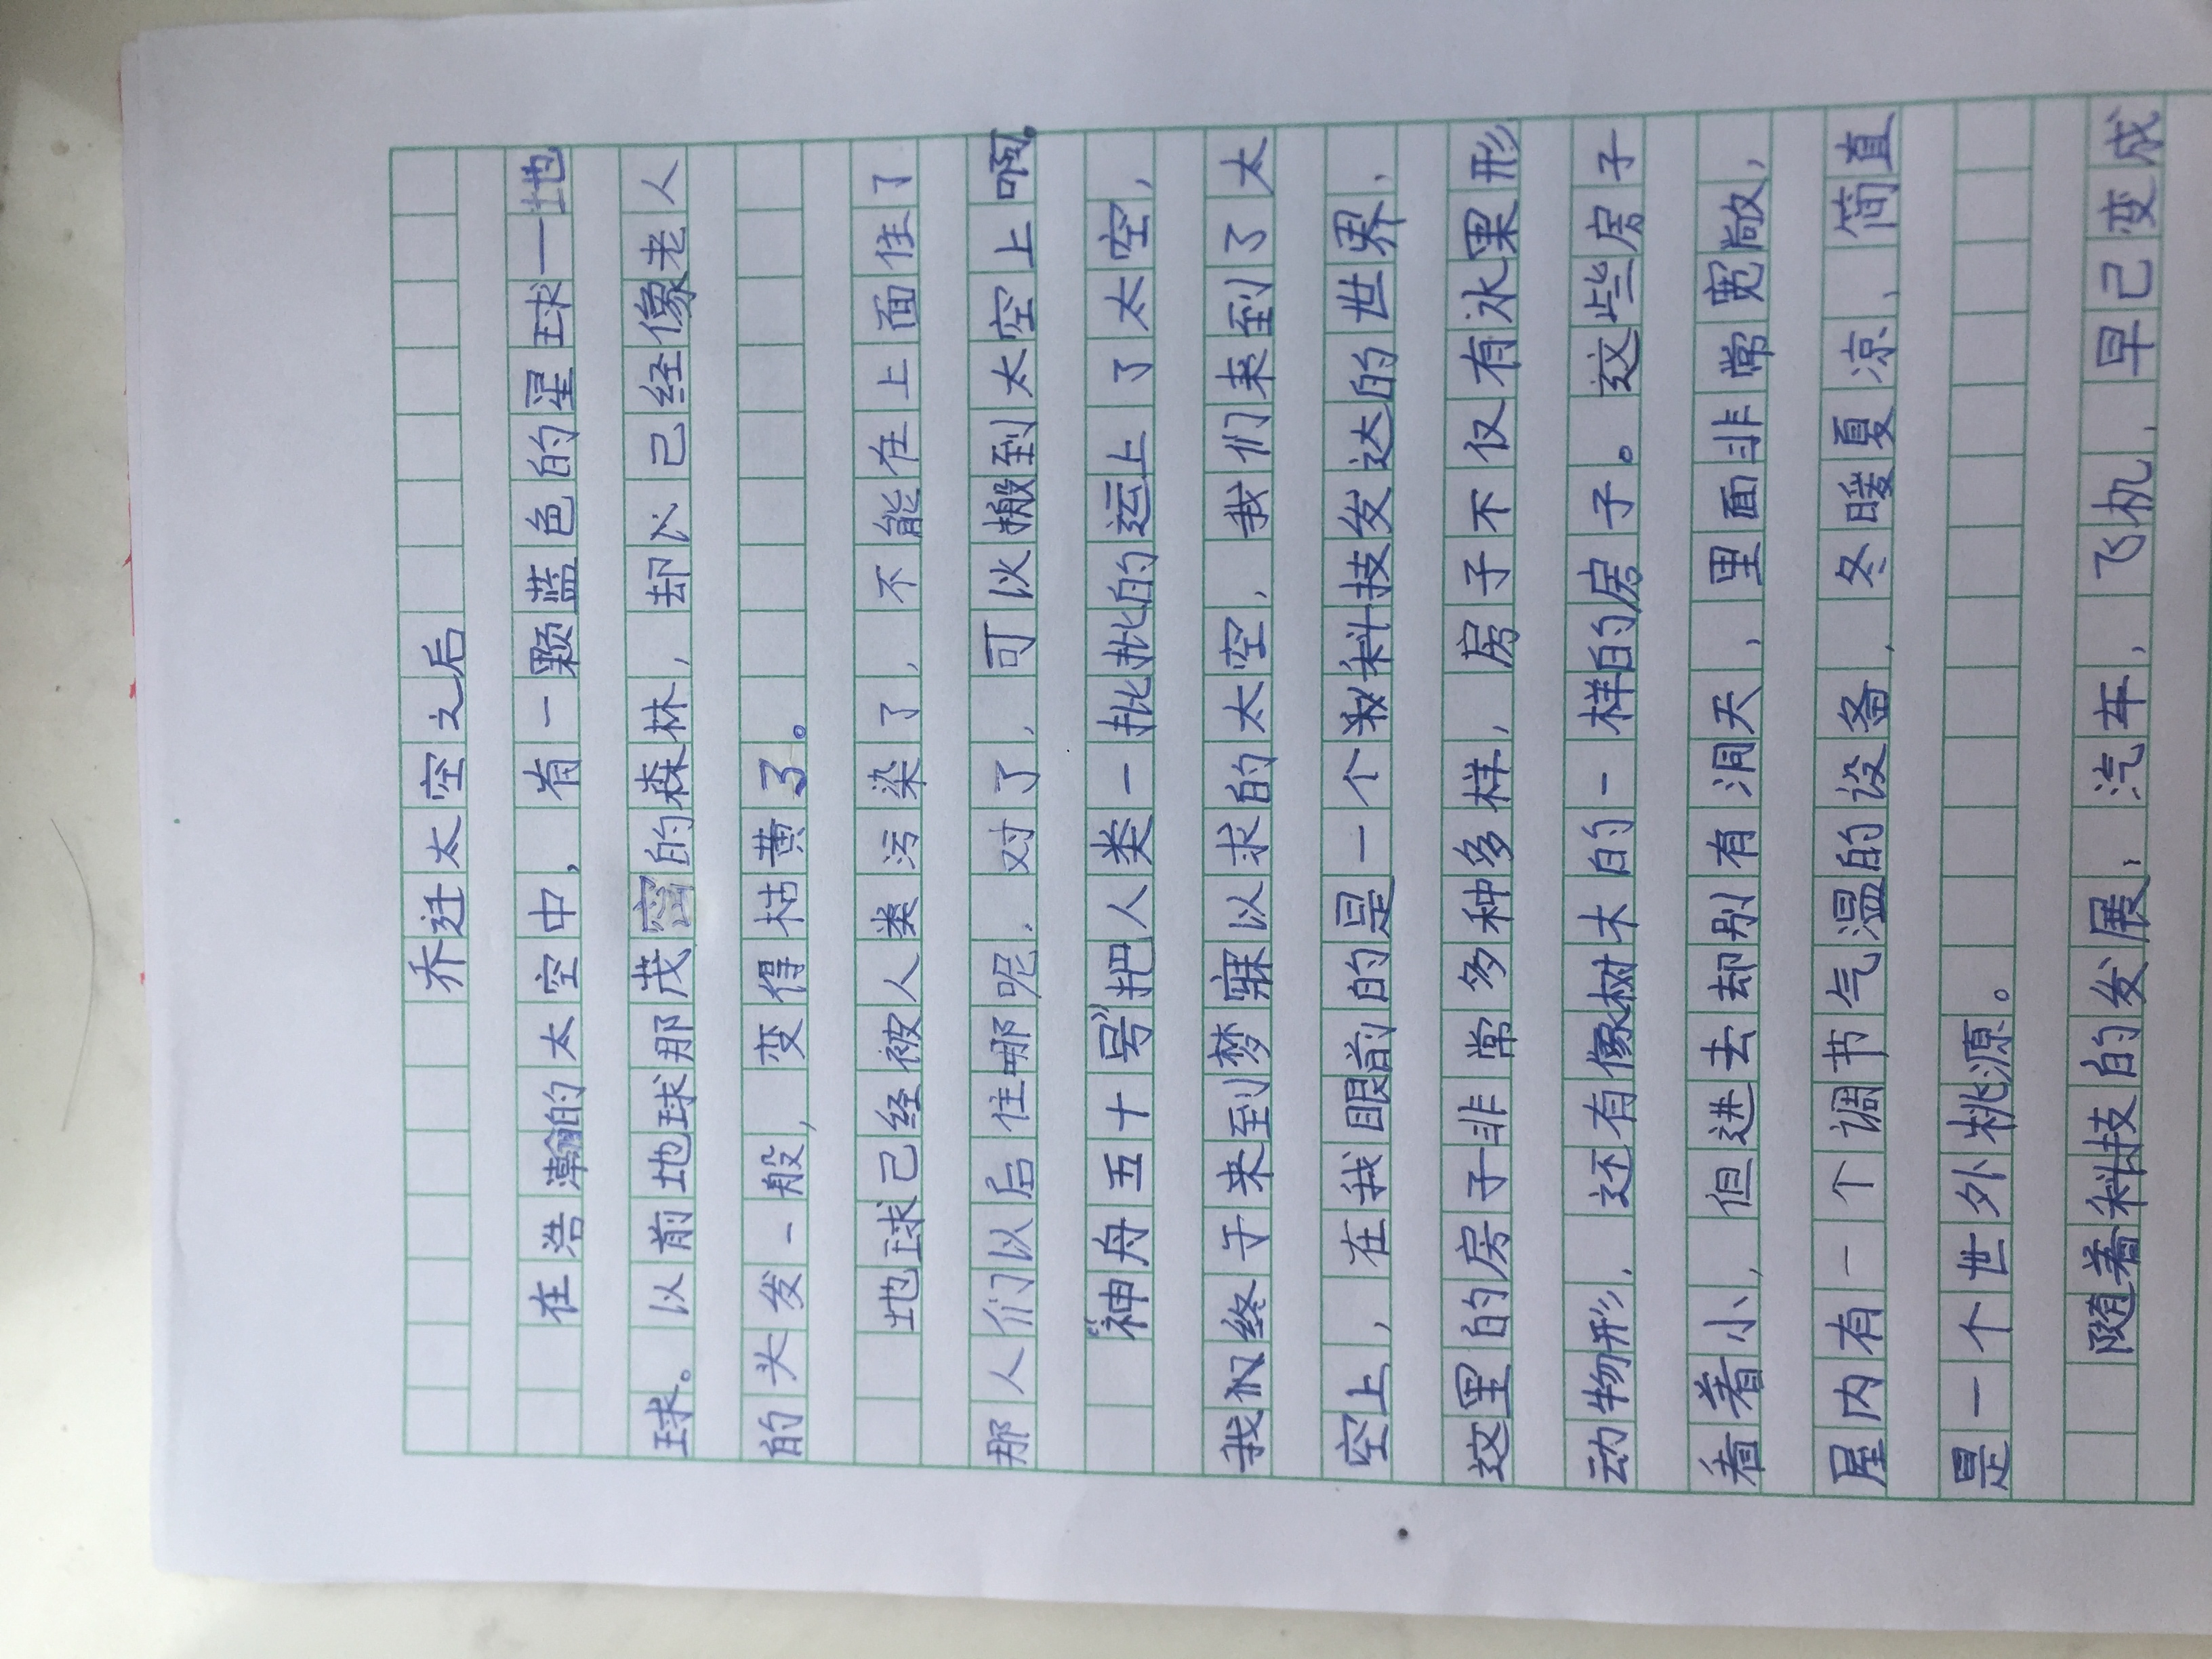 乔迁太空之后
在浩瀚的太空中，有一颗蓝色的星球一地
球。以前地球那茂密的森林，却以己经像老人
的头发一般，变得枯黄了。
地球己经被人类污染了，不能在上面住了
那人们以后住哪呢，对了，可以搬到太空上啊。
“神舟五十号”把人类一批批的运上了太空，
我们终于来到梦寐以求的太空，我们来到了太
空上，在我眼前的是一个科技发达的世界，
这里的房子非常多种多样，房子不仅有水果形
动物形，还有像树木的一样的房子。这些房子
看着小，但进去却别有洞天，里面非常宽敞，
屋内有一个调节气温的设备，冬暖夏凉，简直
是一个世外桃源。
随着科技的发展，汽车，飞机，早己变成